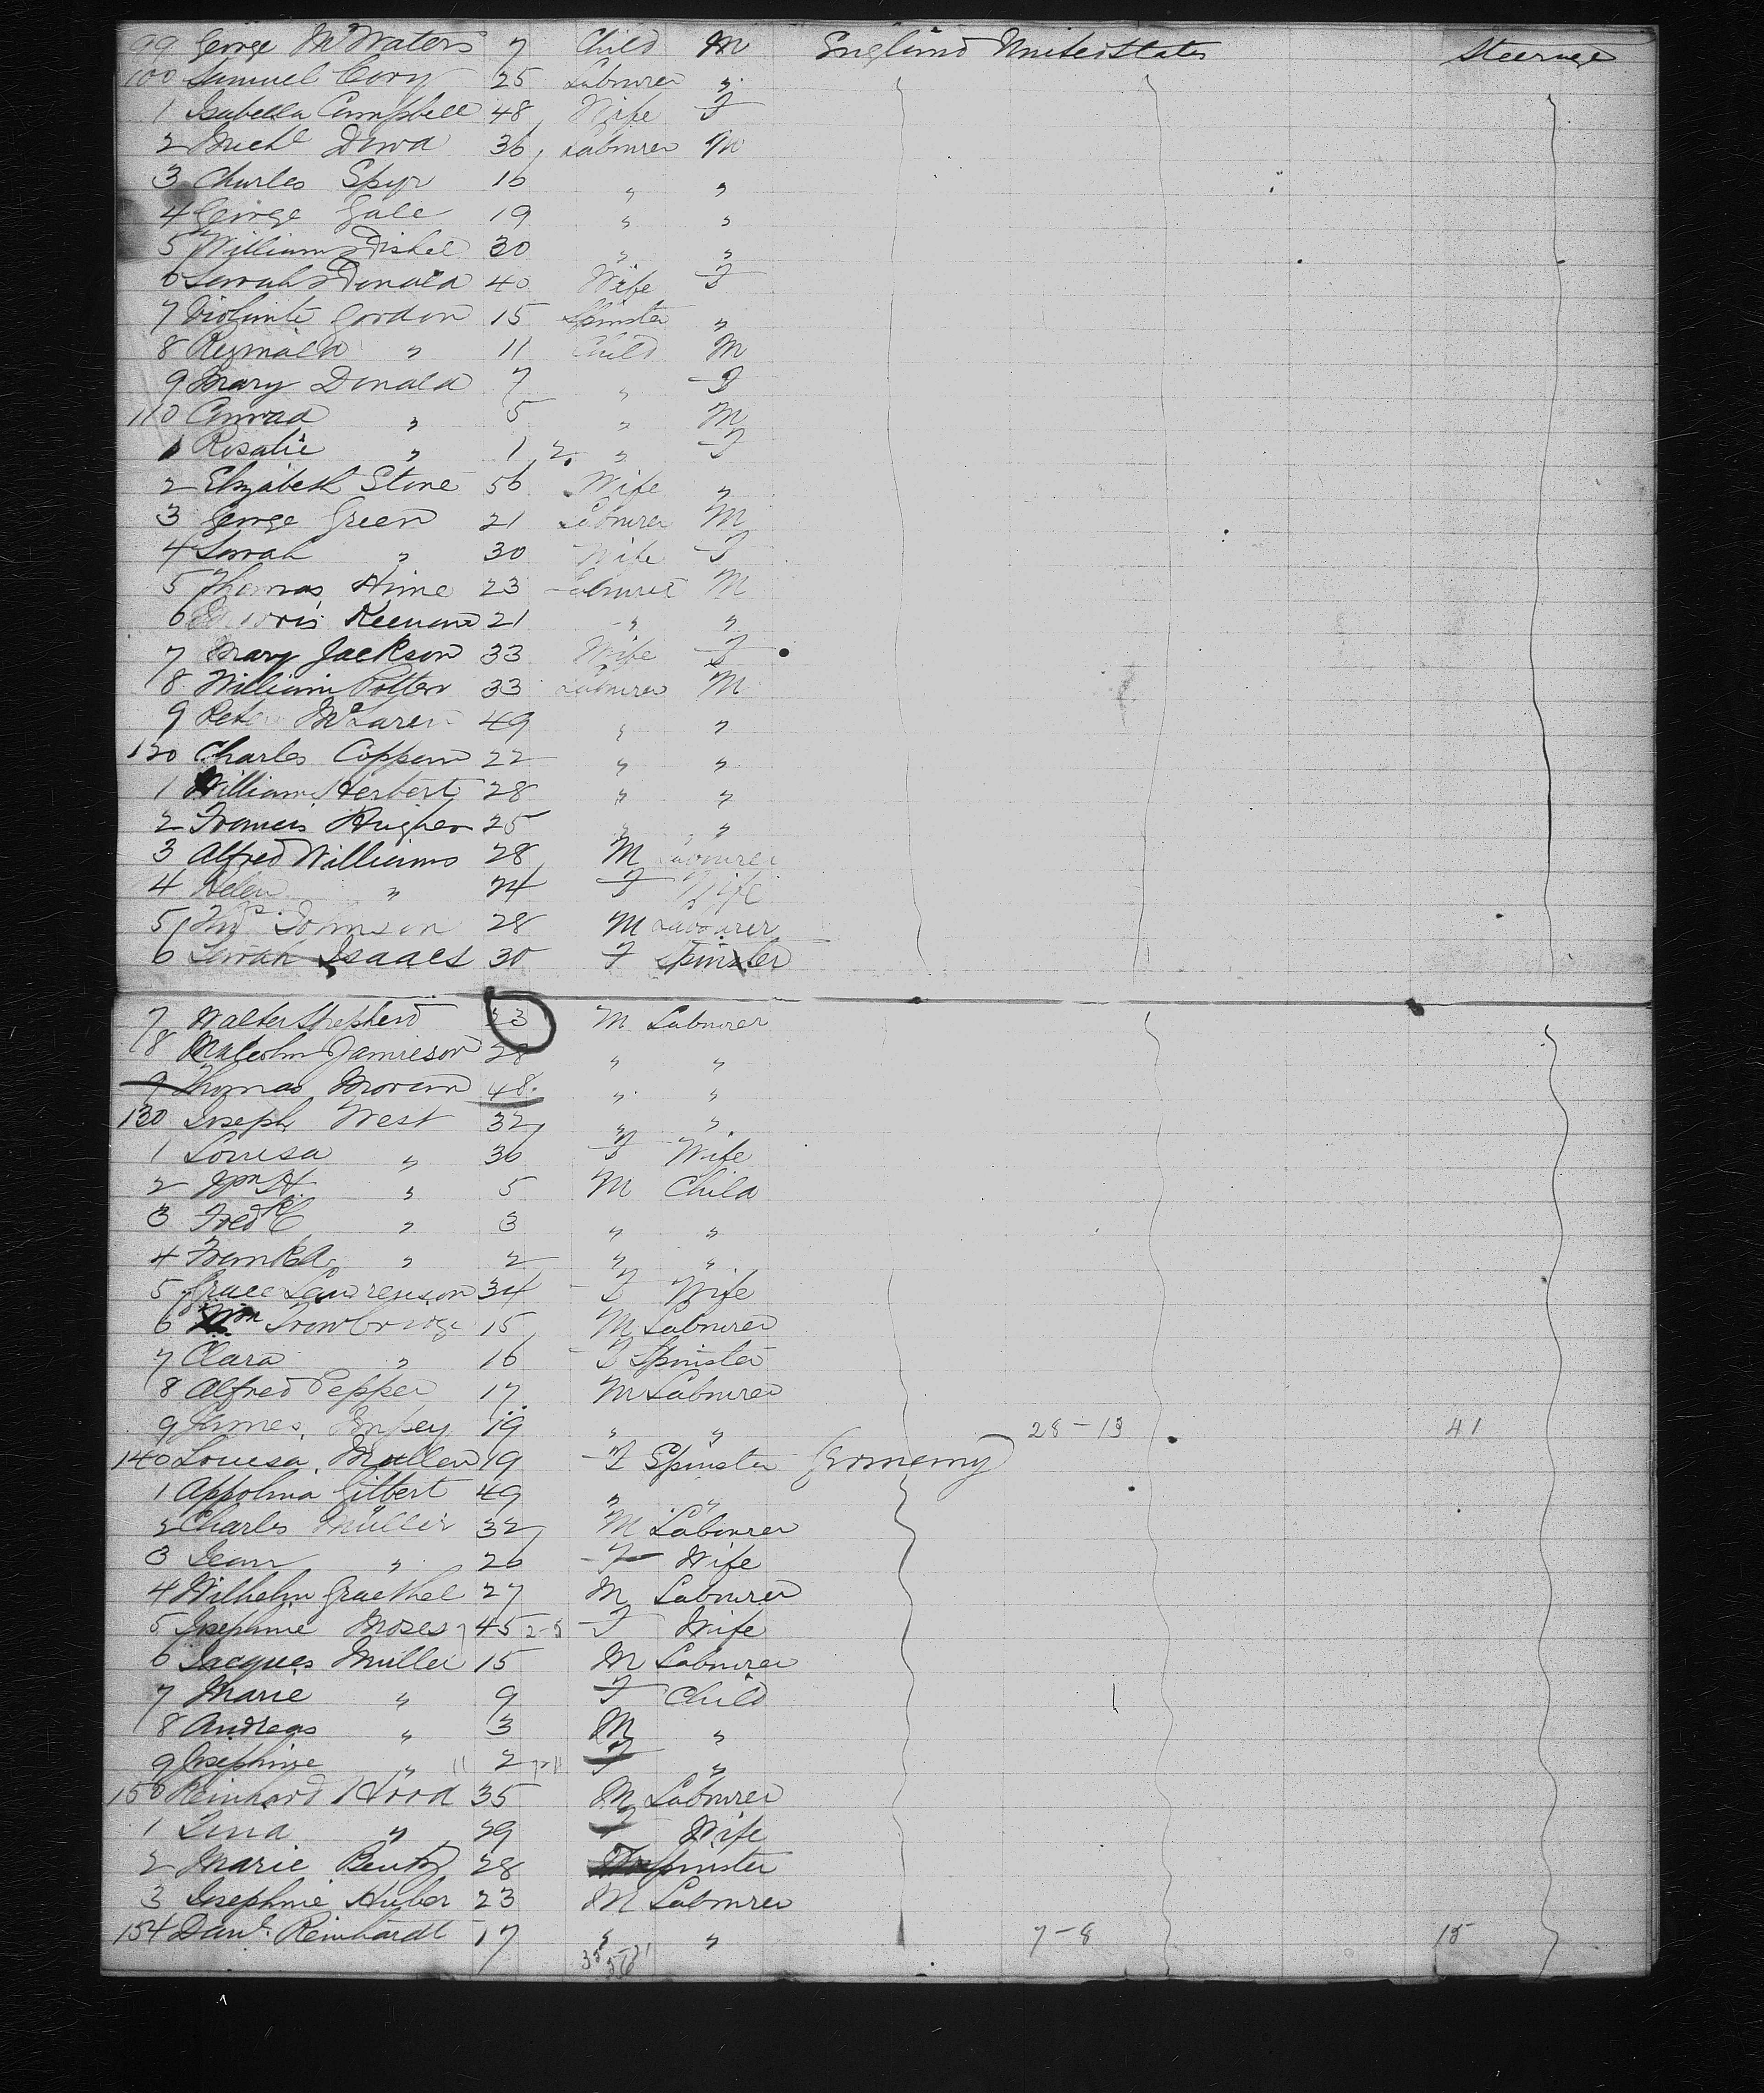 99 George McWaters 7 Child M England United States Steerage
100 Samuel Cory 25 Labourer "
1 Isabella Campbell 48 Wife F
2 Michl Dowd 36 Labourer M
3 Charles Spyr 16 " "
4 George Gale 19 " "
5 William Dishel 30 " "
6 Sarah Donald 40 Wife F
7 Violante Gordon 15 Spinster "
8 Reginald " 11 Child M
9 Mary Donald 7 " F
110 Conrad " 5 " M
1 Rosalie " 1 " F
2 Elizabeth Stone 56 Wife "
3 George Green 21 Labourer M
4 Sarah " 30 Wife F
5 Thomas Hime 23 Labourer M
6 Keenan 21 " "
7 Mary Jackson 33 Wife F
8 William Potter 33 Labourer M
9 Peter McLaren 49 " "
120 Charles Coppen 22 " "
1 William Herbert 28 " "
2 Francis Hughes 25 " "
3 Alfred Williams 28 M Labourer
4 Helen " 24 F Wife
5 Thos Johnson 28 M Labourer
6 Sarah Isaacs 30 F Spinster
7 Walter Shepherd 23 M Labourer
8 Malcolm Jamieson 28 " "
9 Thomas Moran 48 " "
130 Joseph West 32 " "
1 Louisa " 36 F Wife
2 Wm H. " 5 M Child
3 Fredk C " 3 " "
4 Frank A " 2 " "
5 Grace Lawrenson 34 F Wife
6 Wm Trowbridge 15 M Labourer
7 Clara " 16 F Spinster
8 Alfred Pepper 17 M Labourer
9 James Impey 19 " " 28-13 41
140 Louisa Muller 19 F Spinster Germany
1 Appolina Gilbert 49 " "
2 Charles Müller 32 M Labourer
3 Jean " 26 F Wife
4 Wilhelm Graethel 27 M Labourer
5 Josephine Moses 45 F Wife
6 Jacques Muller 15 M Labourer
7 Marie " 9 F Child
8 Andreas " 3 M "
9 Josephine " 2 F "
150 Reinhard Hood 35 M Labourer
1 Lina " 29 F Wife
2 Marie Bentz 28 Spinster
3 Josephine Huber 23 M Labourer
154 Danl Reinhardt 17 " " 7-8 15